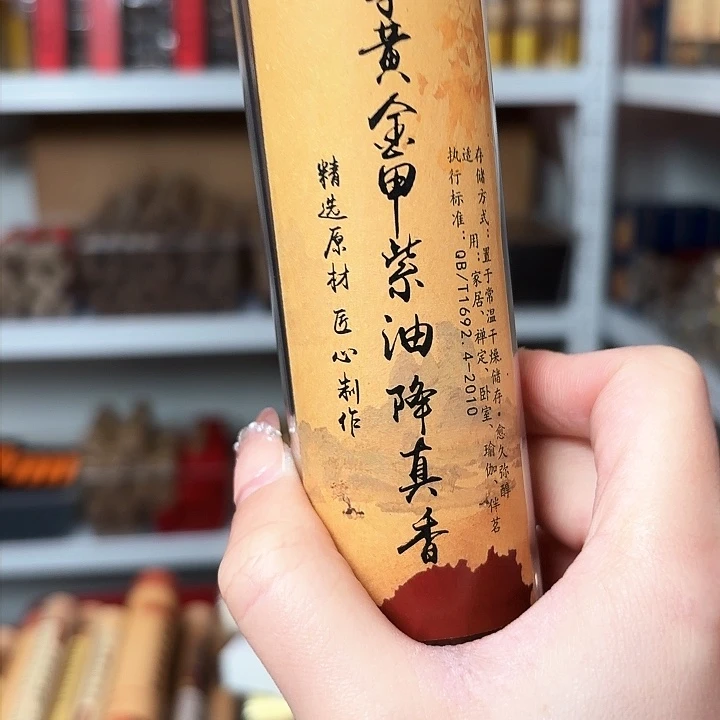 黄金甲紫油降真香
精选原材 匠心制作
存储方式：置于常温干燥储存。愈久弥醇
适用：家居、禅定、卧室、瑜伽、伴茗
执行标准：QB/T1692.4-2010